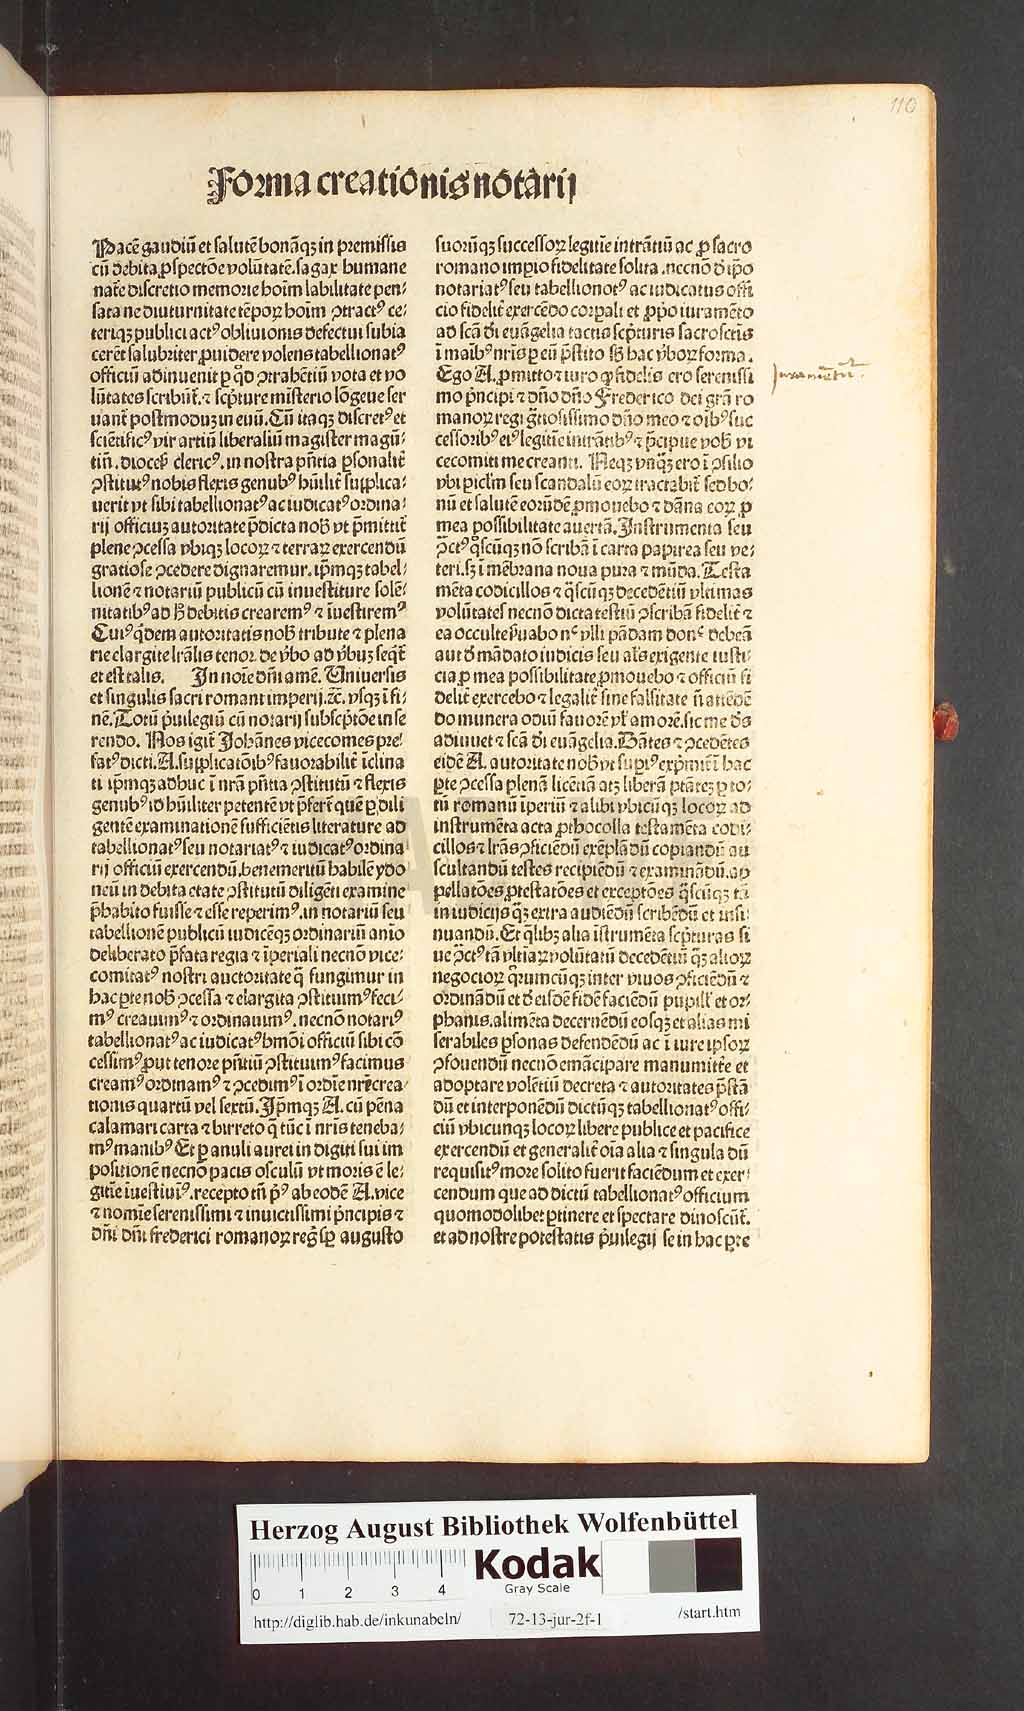 110
Forma creationis notarij
Pacē gaudiū et salutē bonāqꝫ in premissis
cū debita ꝓspectōe volūtatē. sagax humane
nat̄e discretio memorie hoīm labilitate pen⸗
sata ne diuturnitate tēpoꝝ hoīm ꝯtractꝰ ce⸗
teriqꝫ publici actꝰ obliuionis defectui subia
cerēt salubriter ꝓuidere volens tabellionatꝰ
officiū adinuenit ꝑ qd̄ ꝯtrahētiū vota et vo
lūtates scribūt̄. ⁊ scp̄ture misterio lōgeue ser
uant̄ postmoduꝫ in euū. Cū itaqꝫ discretꝰ et
sciētificꝰ vir artiū liberaliū magister magū⸗
tiñ. dioceꝭ clericꝰ. in nostra pn̄tia ꝑsonalit̄
ꝯstitutꝰ nobis flexis genubꝰ hūilit̄ supplica⸗
uerit vt sibi tabellionatꝰ ac iudicatꝰ ordina⸗
rij officiuꝫ autoritate p̄dicta nob̄ vt p̄mittit̄
plene ꝯcessa vbiqꝫ locoꝝ ⁊ terraꝝ exercendū
gratiose ꝯcedere dignaremur. ip̄mqꝫ tabel⸗
lionē ⁊ notariū publicū cū inuestiture solē⸗
nitatibꝰ ad h̄ debitis crearemꝰ ⁊ īuestiremꝰ
Cuiꝰ qd̄em autoritatis nob̄ tribute ⁊ plena
rie elargite lr̄alis tenor. de v̄bo ad v̄buꝫ seqt̄
et est talis. In noīe dn̄i amē. Vniuersis
et singulis sacri romani imperij. ⁊c̄. vsqꝫ ī fi⸗
nē. Totū p̄uilegiū cū notarij subscp̄tōe in se
rendo. Nos igit̄ Johānes vicecomes pre⸗
fatꝰ dicti. A. supplicatōibꝰ fauorabilit̄ īclina
ti ip̄mqꝫ adhuc ī nr̄a pn̄tia ꝯstitutū ⁊ flexis
genubꝰ id hūiliter petentē vt p̄fert̄ quē ꝑ dili
gentē examinationē sufficiētis literature ad
tabellionatꝰ seu notariatꝰ ⁊ iudicatꝰ ordina
rij officiū exercendū. benemeritū habilē ydo
neū in debita etate ꝯstitutū diligēti examine
p̄habito fuisse ⁊ esse reperimꝰ. in notariū seu
tabellionē publicū iudicēqꝫ ordinariū anīo
deliberato p̄fata regia ⁊ īperiali necnō vice⸗
comitatꝰ nostri auctoritate q̄ fungimur in
hac ꝑte nob̄ ꝯcessa ⁊ elargita ꝯstituimꝰ feci⸗
mꝰ creauimꝰ ⁊ ordinauimꝰ. necnō notariꝰ
tabellionatꝰ ac iudicatꝰ hmōi officiū sibi cō
cessimꝰ ꝓut tenore pn̄tiū ꝯstituimꝰ facimus
creamꝰ ordinamꝰ ⁊ ꝯcedimꝰ ī ordīe nr̄e crea⸗
tionis quartū vel sextū. Ip̄mqꝫ A. cū pēna
calamari carta ⁊ birreto q̄ tūc ī nr̄is teneba⸗
mꝰ manibꝰ Et ꝑ anuli aurei in digiti sui im
positionē necnō pacis osculū vt moris ē le⸗
gitīe īuestiuīꝰ. recepto tn̄ pꝰ ab eodē A. vice
⁊ nomīe serenissimi ⁊ inuictissimi p̄ncipis ⁊
dn̄i dn̄i frederici romanoꝝ reḡ sꝑ augusto
suorūqꝫ successoꝝ legittīe intrātiū ac ꝓ sacro
romano imꝑio fidelitate solita. necnō d̄ ip̄o
notariatꝰ seu tabellionatꝰ ac iudicatus offi
cio fidelit̄ exercēdo corꝑali et ꝓpo iuramēto
ad scā dī euāgelia tactis scp̄turis sacrosctīs
ī maībꝰ nr̄is ꝑ eū p̄stito sb̄ hac v̄boꝝ forma.
Ego A. ꝓmitto ⁊ iuro qꝙ fidelis ero serenissi
mo p̄ncipi ⁊ dn̄o dn̄o Frederico dei grā ro
manoꝝ regi gtiosissimo dn̄o meo ⁊ oībꝰ suc
cessoribꝰ eiꝰ legitīe intrātibꝰ ⁊ p̄cipue vob̄ vi
cecomiti me creanti. Neqꝫ vnqꝫ ero ī ꝯsilio
vbi ꝑiclm̄ seu scandalū eoꝝ tractabit̄ sed bo⸗
nū et salutē eorūdē ꝓmouebo ⁊ dāna eoꝝ ꝓ
mea possibilitate auertā. Instrumenta seu
ꝯctꝰ qscūqꝫ nō scribā ī carta papirea seu ve⸗
teri. sꝫ ī mēbrana noua pura ⁊ mūda. Testa
mēta codicillos ⁊ qscūqꝫ decedētiū vltimas
volūtates necnō dicta testiū ꝯscribā fidelit̄ ⁊
ea occulte p̄uabo nꝰ vlli pādam donꝰ debeā
aut d̄ mādato iudicis seu al's exigente iusti⸗
cia ꝓ mea possibilitate. ꝓmouebo ⁊ officiū fi
delit̄ exercebo ⁊ legalit̄ sine falsitate n̄ attēdē
do munera odiū fauorē vl' amorē. sic me ds̄
adiuuet ⁊ scā dī euāgelia. Dātes ⁊ ꝯcedētes
eidē A. autoritate nob̄ vt supiꝰ exp̄mit̄ ī hac
ꝑte ꝯcessa plenā licētiā atqꝫ liberā ptātē ꝑ to⸗
tū romanū īperiū ⁊ alibi vbicūqꝫ locoꝝ ad
instrumēta acta ꝓthocolla testamēta codi⸗
cillos ⁊ lr̄as ꝯficiēdū exēplādū copiandū au
scultandū testes recipiēdū ⁊ examinādū. ap
pellatōes ꝓtestatōes et exceptōes qscūqꝫ tā
in iudicijs qꝫ extra audiēdū scribēdū et insi⸗
nuandū. Et qlibꝫ alia īstrumēta scp̄turas si
ue ꝯctꝰ tā vltiaꝝ volūtatū decedētiū qꝫ alioꝝ
negocioꝝ qrumcūqꝫ inter viuos ꝯficiēdū ⁊
ordinādū et d̄ eisdē fidē faciēdū pupill' et or⸗
phanis. alimēta decernēdū eosqꝫ et alias mi
serabiles ꝑsonas defendēdū ac ī iure ip̄soꝝ
ꝯfouendū necnō emācipare manumitt̄e et
adoptare volētiū decreta ⁊ autoritates p̄stā
dū et interponēdū dictūqꝫ tabellionatꝰ offi⸗
ciū vbicunqꝫ locoꝝ libere publice et pacifice
exercendū et generalit̄ oīa alia ⁊ singula dū
requisitꝰ more solito fuerit faciēdum et exer⸗
cendum que ad dictū tabellionatꝰ officium
quomodolibet ꝑtinere et spectare dinoscūt̄.
et ad nostre potestatis p̄uilegij se in hac ꝑte
Juramētū
Herzog August Bibliothek Wolfenbüttel
0 1 2 3 4
Kodak
Gray Scale
http://diglib.hab.de/inkunabeln/ 72-13-jur-2f-1 /start.htm